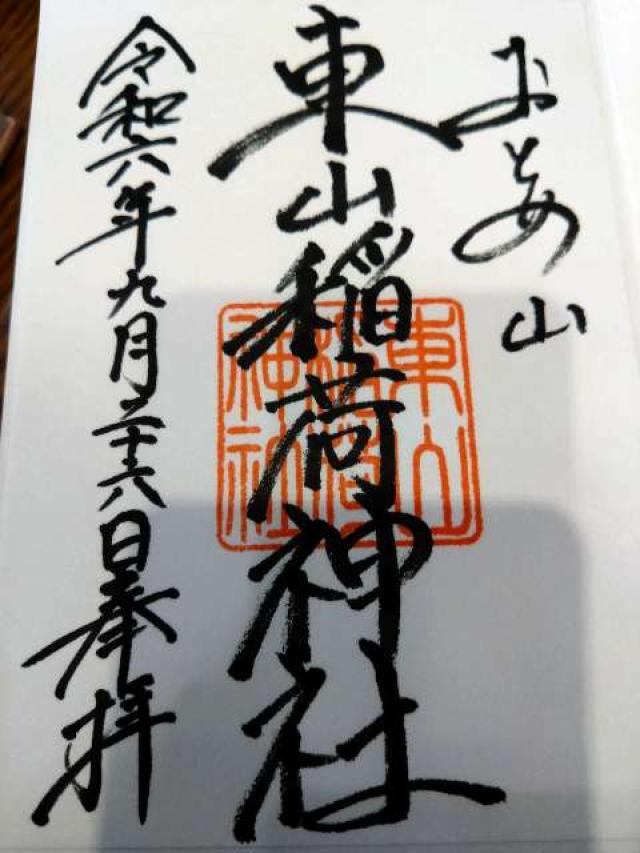 おとめ山
東山稲荷神社
東山稲荷神社
令和六年九月二十六日奉拝